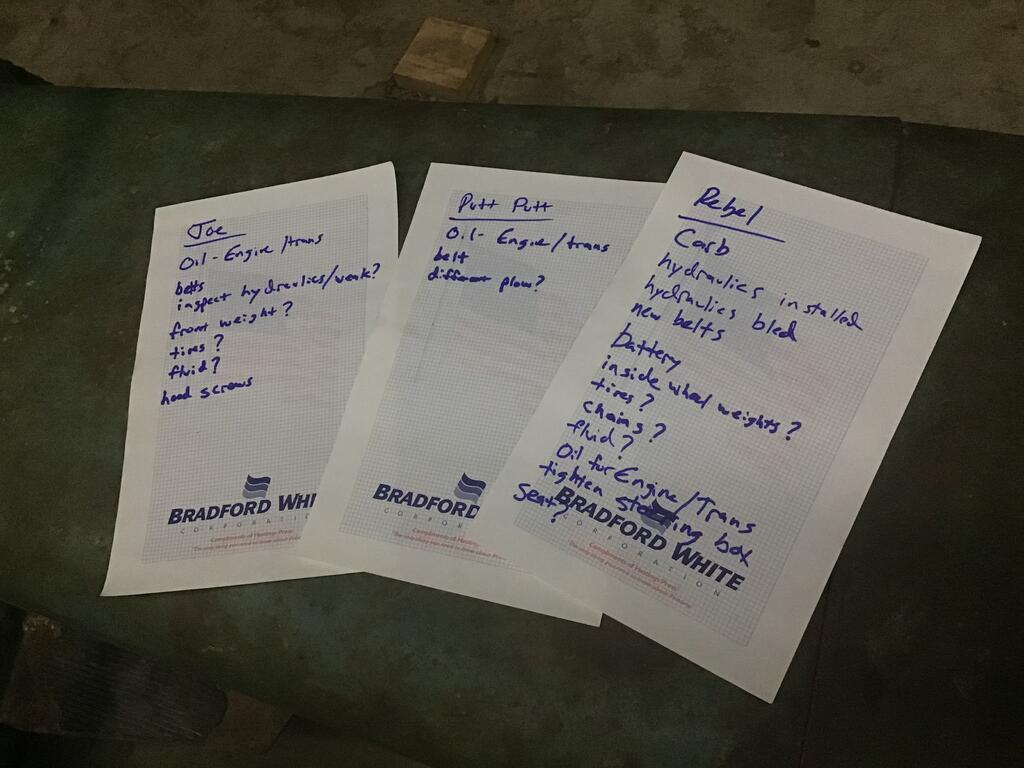 Joe
Oil - Engine/trans
belts
inspect hydraulics/weak?
front weight?
tires?
fluid?
hood screws
BRADFORD WHI
CORPORATIO
Compliments of Hastings Press
Putt Putt
Oil - Engine/trans
belt
different plow?
BRADFORD
CORPOR
Compliments of Hastings
Rebel
Carb
hydraulics installed
hydraulics bled
new belts
Battery
inside wheel weights?
tires?
chains?
fluid?
Oil for Engine/Trans
tighten steering box
Seat?
BRADFORD WHITE
CORPORATION
Compliments of Hastings Press